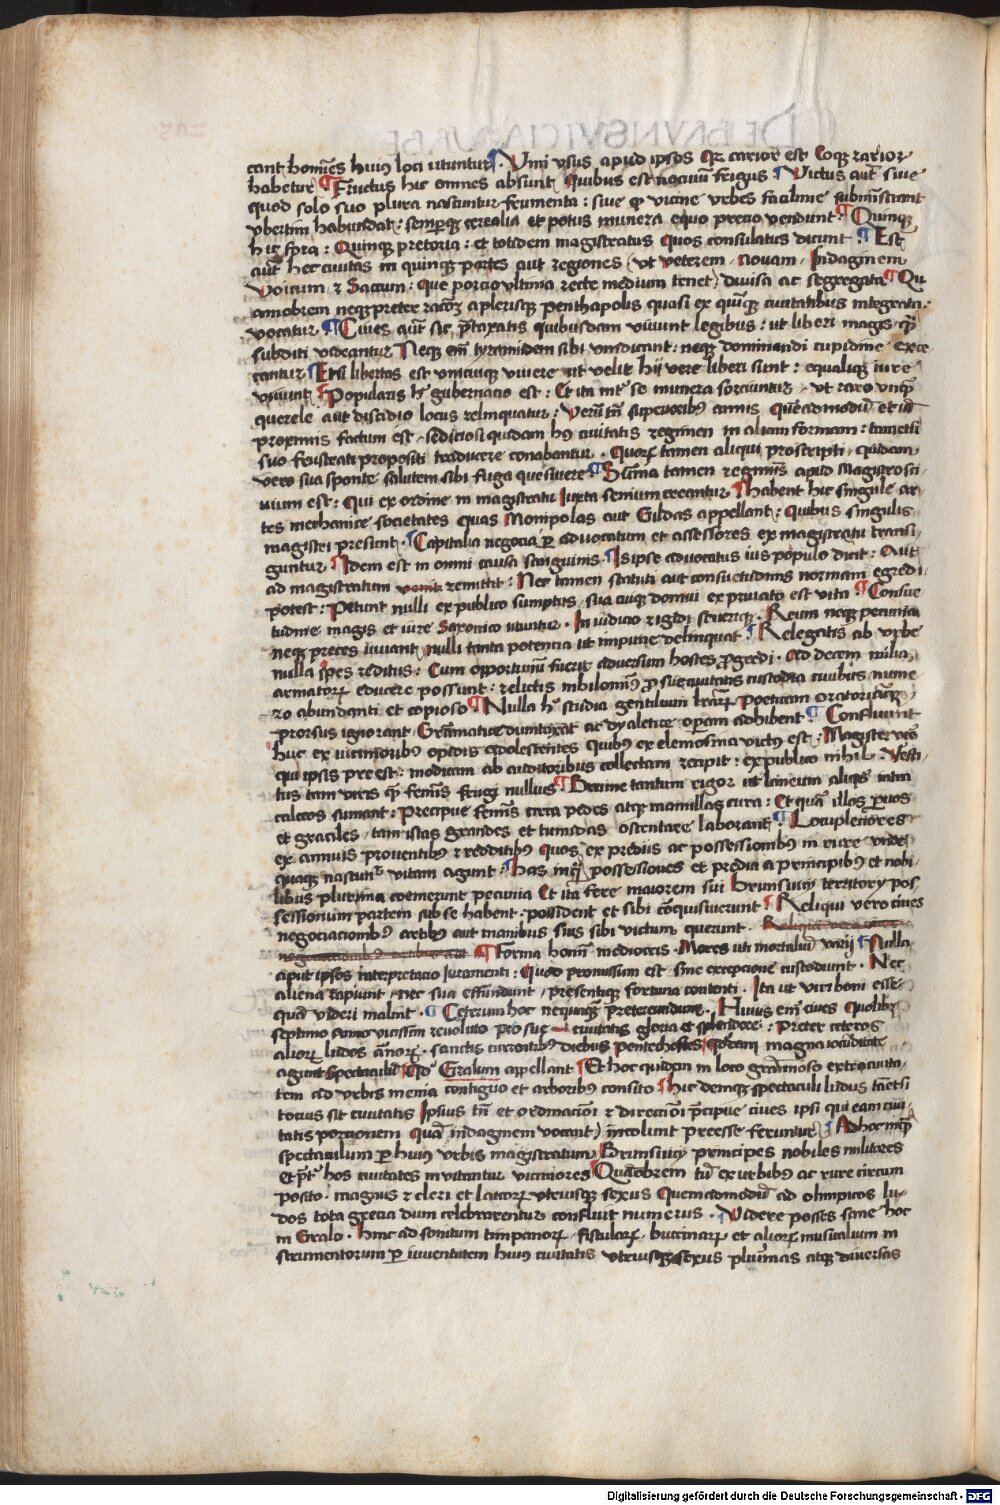 cant homines huius loci utuntur. Vini usus apud ipsos quia carior est eoque rarior
habetur ¶ Fructus hic omnes absunt Quibus est nocivum frigus ¶ Victus aut sive
quod solo suo plura nascuntur frumenta: sive quod vicine urbes facilime subministrant
ubertim habundat: semperque cerealia et potus munera equo precio vendunt: ¶ Quinque
hic fora: Quinque pretoria: et totidem magistratus quos consulatus dicunt ¶ Est
aut hec civitas in quinque partes aut regiones (ut veterem, Novam, Indaginem
Voicum et Saccum: que porcio ultima recte medium tenet) divisa ac segregata ¶ Qu
amobrem neque preter racionem a plerisque penthapolis quasi ex quinque civitatibus integrata:
vocatur ¶ Cives aut sic pretaxatis quibusdam vivunt legibus: ut liberi magis quam
subditi videantur Neque enim tyrannidem sibi vendicant: neque dominandi cupidine exce
cantur ¶ Etsi libertas est unicuique vivere ut velit hij vere liberi sunt: equalique iure
vivunt ¶ Popularis hic gubernacio est: Et ita inter se munera sorciuntur, ut raro unquam
querele aut discidio locus relinquatur: Verum tamen superioribus annis quemadmodum et iam
proximis factum est, sediciosi quidam huius civitatis regimen in aliam formam: tametsi
suo frustrati propositi traducere conabantur. Quorum tamen aliqui proscripti, quidam
vero sua sponte salutem sibi fuga quesivere ¶ Summa tamen regiminis apud Magistros ci
vium est: Qui ex ordine in magistratu iuxta senium creantur ¶ Habent hic singule ar
tes mechanice societates quas Monipolas aut Gildas appellant: quibus singulis
magistri presunt. ¶ Capitalia negocia per advocatum et assessores ex magistratu transi
guntur ¶ Idem est in omni causa sanguinis ¶ Is ipse advocatus ius populo dicit: Aut
ad magistratum remittit: Nec tamen statuti aut consuetudinis normam egredi
potest: Petunt nulli ex publico sumptus, sua cuique domui ex privato est vita ¶ Consue
tudine magis et iure Saxonico utuntur. In iudicio rigidi severique. Reum neque pecunia
neque preces iuvant, nulli tanta potencia ut impune delinquat ¶ Relegatis ab urbe
nulla spes reditus: Cum opportunum fuerit adversum hostes progredi. Ad decem milia
armatorum educere possunt: relictis nihilominus pro sue civitatis custodia civibus nume
ro abundanti et copioso ¶ Nulla hic studia gentilium litterarum Poeticam oratoriamque
prorsus ignorant Grammatice dumtaxat ac dyaletice operam adhibent ¶ Confluunt
huc ex vicinioribus opidis adolescentes quibus ex elemosina victus est: Magister vero
qui ipsis preest: modicam ab auditoribus collectam recipit: ex publico nihil. Vesti
tus tam viris quam feminis frugi nullus ¶ Brume tantum rigor ut lineum aliquis intra
calceos sumant: Precipue feminis circa pedes atque mamillas cura: Et quam illos parvos
et graciles, tam istas grandes et tumidas ostentare laborant ¶ Locupleciores
ex annuis proventibus et redditibus quos ex prediis ac possessionibus in rure unde
quaque nascuntur vitam agunt: ¶ Has inquam possessiones et predia a principibus et nobi
libus plurima coemerunt pecunia Et ita fere maiorem sui Brunsuicij territorij pos
sessionum partem sub se habent: possident et sibi conquisiverunt ¶ Reliqui vero cives
negociacionibus artibus aut manibus suis sibi victum querunt. Reliqui vero cives
¶ Forma homini mediocris. Mores uti mortalium varij ¶ Nulla
aput ipsos interpretacio iuramenti: Quod promissum est, sine excepcione custodiunt. Nec
aliena rapiunt, nec sua effundunt, presentique fortuna contenti. Ita ut viri boni esse
quam videri malint. ¶ Ceterum hoc nequaquam pretereundum. Huius enim cives quolibet
septimo anno vicissim revoluto pro sue civitatis gloria et splendore: Preter ceteros
aliorum ludos annorum. sanctis currentibus diebus Penthecostes, quoddam magna iocunditate
agunt spectaculum quod Gralum appellant ¶ Et hoc quidem in loco graminoso extra civita
tem ad urbis menia contiguo et arboribus consito ¶ Hic denique spectaculi ludus tametsi
tocius sit civitatis Ipsius tamen et ordinacioni et direccioni precipue cives ipsi qui eam civi
tatis porcionem quam indaginem vocant) incolunt preesse feruntur ¶ Ad hoc inquam
spectaculum per huius urbis magistratum Brunsuicij principes nobiles milites
et preter hos civitates invitantur viciniores Quamobrem tum ex urbibus ac rure circum
posito. magnus et cleri et laicorum utriusque sexus Quemadmodum ad olimpicos lu
dos tota grecia dum celebrarentur confluit numerus. Videre posses sane hoc
in Gralo. hinc ad sonitum timpanorum, fistularum, buccinarum et aliorum musicalium in
strumentorum per iuventutem huius civitatis utriusque sexus plurimas atque diversas
Digitalisierung gefördert durch die Deutsche Forschungsgemeinschaft - DFG